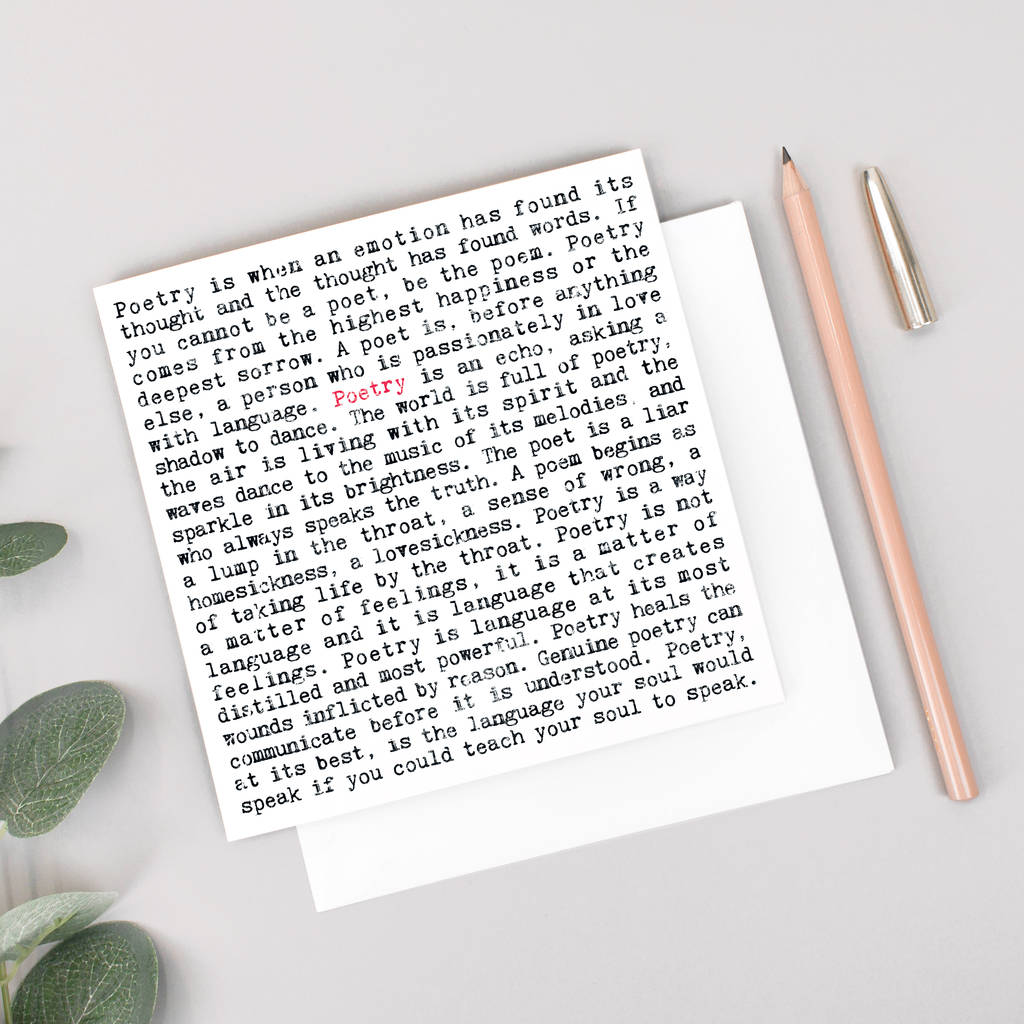 Poetry is when an emotion has found its
thought and the thought has found words. If
you cannot be a poet, be the poem. Poetry
comes from the highest happiness or the
deepest sorrow. A poet is, before anything
else, a person who is passionately in love
with language. Poetry is an echo, asking a
shadow to dance. The world is full of poetry,
the air is living with its spirit and the
waves dance to the music of its melodies, and
sparkle in its brightness. The poet is a liar
who always speaks the truth. A poem begins as
a lump in the throat, a sense of wrong, a
homesickness, a lovesickness. Poetry is a way
of taking life by the throat. Poetry is not
a matter of feelings, it is a matter of
language and it is language that creates
feelings. Poetry is language at its most
distilled and most powerful. Poetry heals the
wounds inflicted by reason. Genuine poetry can
communicate before it is understood. Poetry,
at its best, is the language your soul would
speak if you could teach your soul to speak.